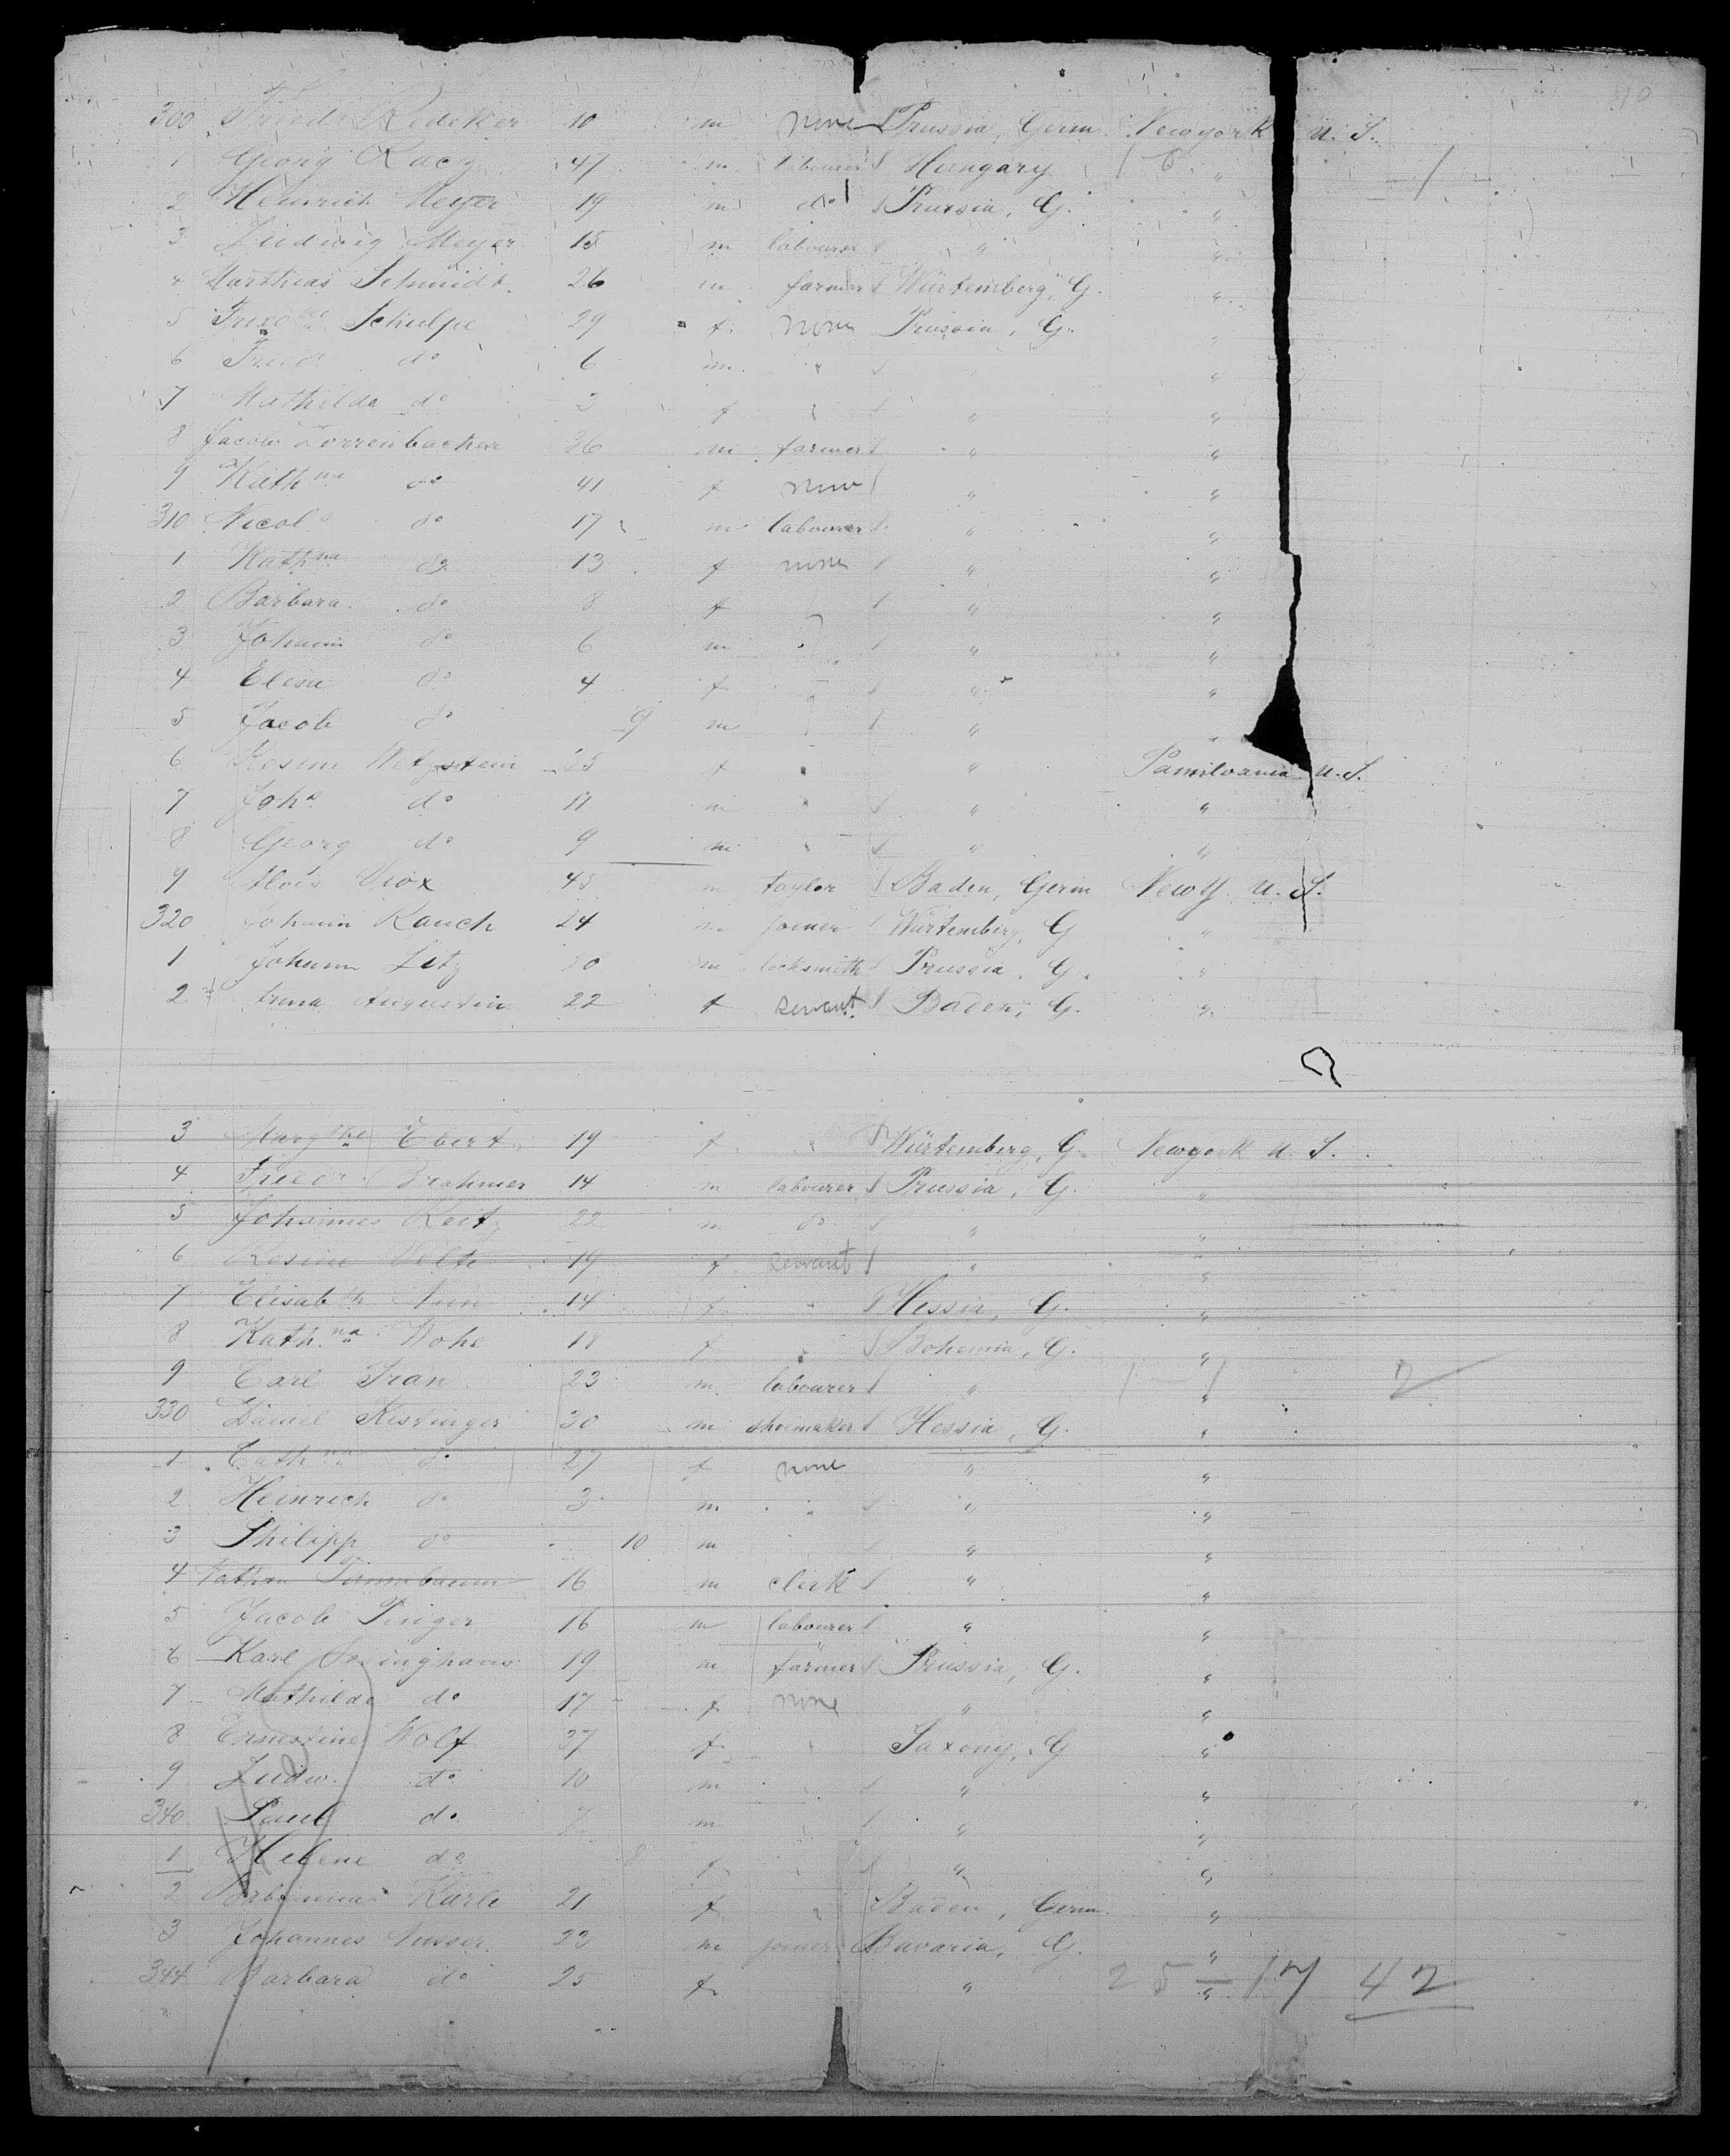 300 Friedr Redeker 10 m none Prussia, Germ. Newyork U. S.
1 Georg Racz 47 m labourer Hungary "
2 Heinrich Meyer 19 m do Prussia, G. "
3 Ludwig Meyer 15 m labourer " "
4 Matthias Schmidt 26 m farmer Würtemberg, G. "
5 Schulpe 29 f none Prussia, G. "
6 Friedr do 6 m " " "
7 Mathilde do 3 f " " "
8 Jacob Dorrenbacher 36 m farmer " "
9 Kath na do 41 f none " "
310 Nicol do 17 m labourer " "
1 Kath na do 13 f none " "
2 Barbara do 8 f " "
3 Johann do 6 m " " "
4 Elise do 4 f " " "
5 Jacob do 9 m " "
6 Rosine Wetzstein 25 f " " Pansilvania U. S.
7 Joh. do 11 m " " "
8 Georg do 9 m " " "
9 Alois Viox 45 m taylor Baden, Germ NewY U. S.
320 Johann Rauch 24 m joiner Würtemberg, G "
1 Johann Letz 20 m locksmith Prussia, G. "
2 Anna Augustin 22 f servant Baden, G. "
3 Ebert 19 f " Würtemberg, G. Newyork U. S.
4 Friedr Brahmer 14 m labourer Prussia, G. "
5 Johannes Reitz 22 m do " "
6 Rosine Velte 19 f servant " "
7 Elisabeth 14 f " Hessia, G. "
8 Kath. na Wohe 18 f " Bohemia, G. "
9 Carl Fran 23 m labourer " " 2
330 Daniel Kistinger 30 m shoemaker Hessia, G. "
1 Cath na do 27 f none " "
2 Heinrich do 3 m " " "
3 Philipp do 10 m " "
4 Tannenbaum 16 m clerk " "
5 Jacob Pinger 16 m labourer " "
6 Karl 19 m farmer Prussia, G. "
7 Mathilde do 17 f none " "
8 Ernestine Wolf 37 f " Saxony, G "
9 Ludw. do 10 m " "
340 Paul do 7 m " "
1 Helene do 8 f " "
2 Karle 21 f " Baden, Germ. "
3 Johannes Nusser 23 m joiner Bavaria, G. "
344 Barbara do 25 f " "
25 — 17 42